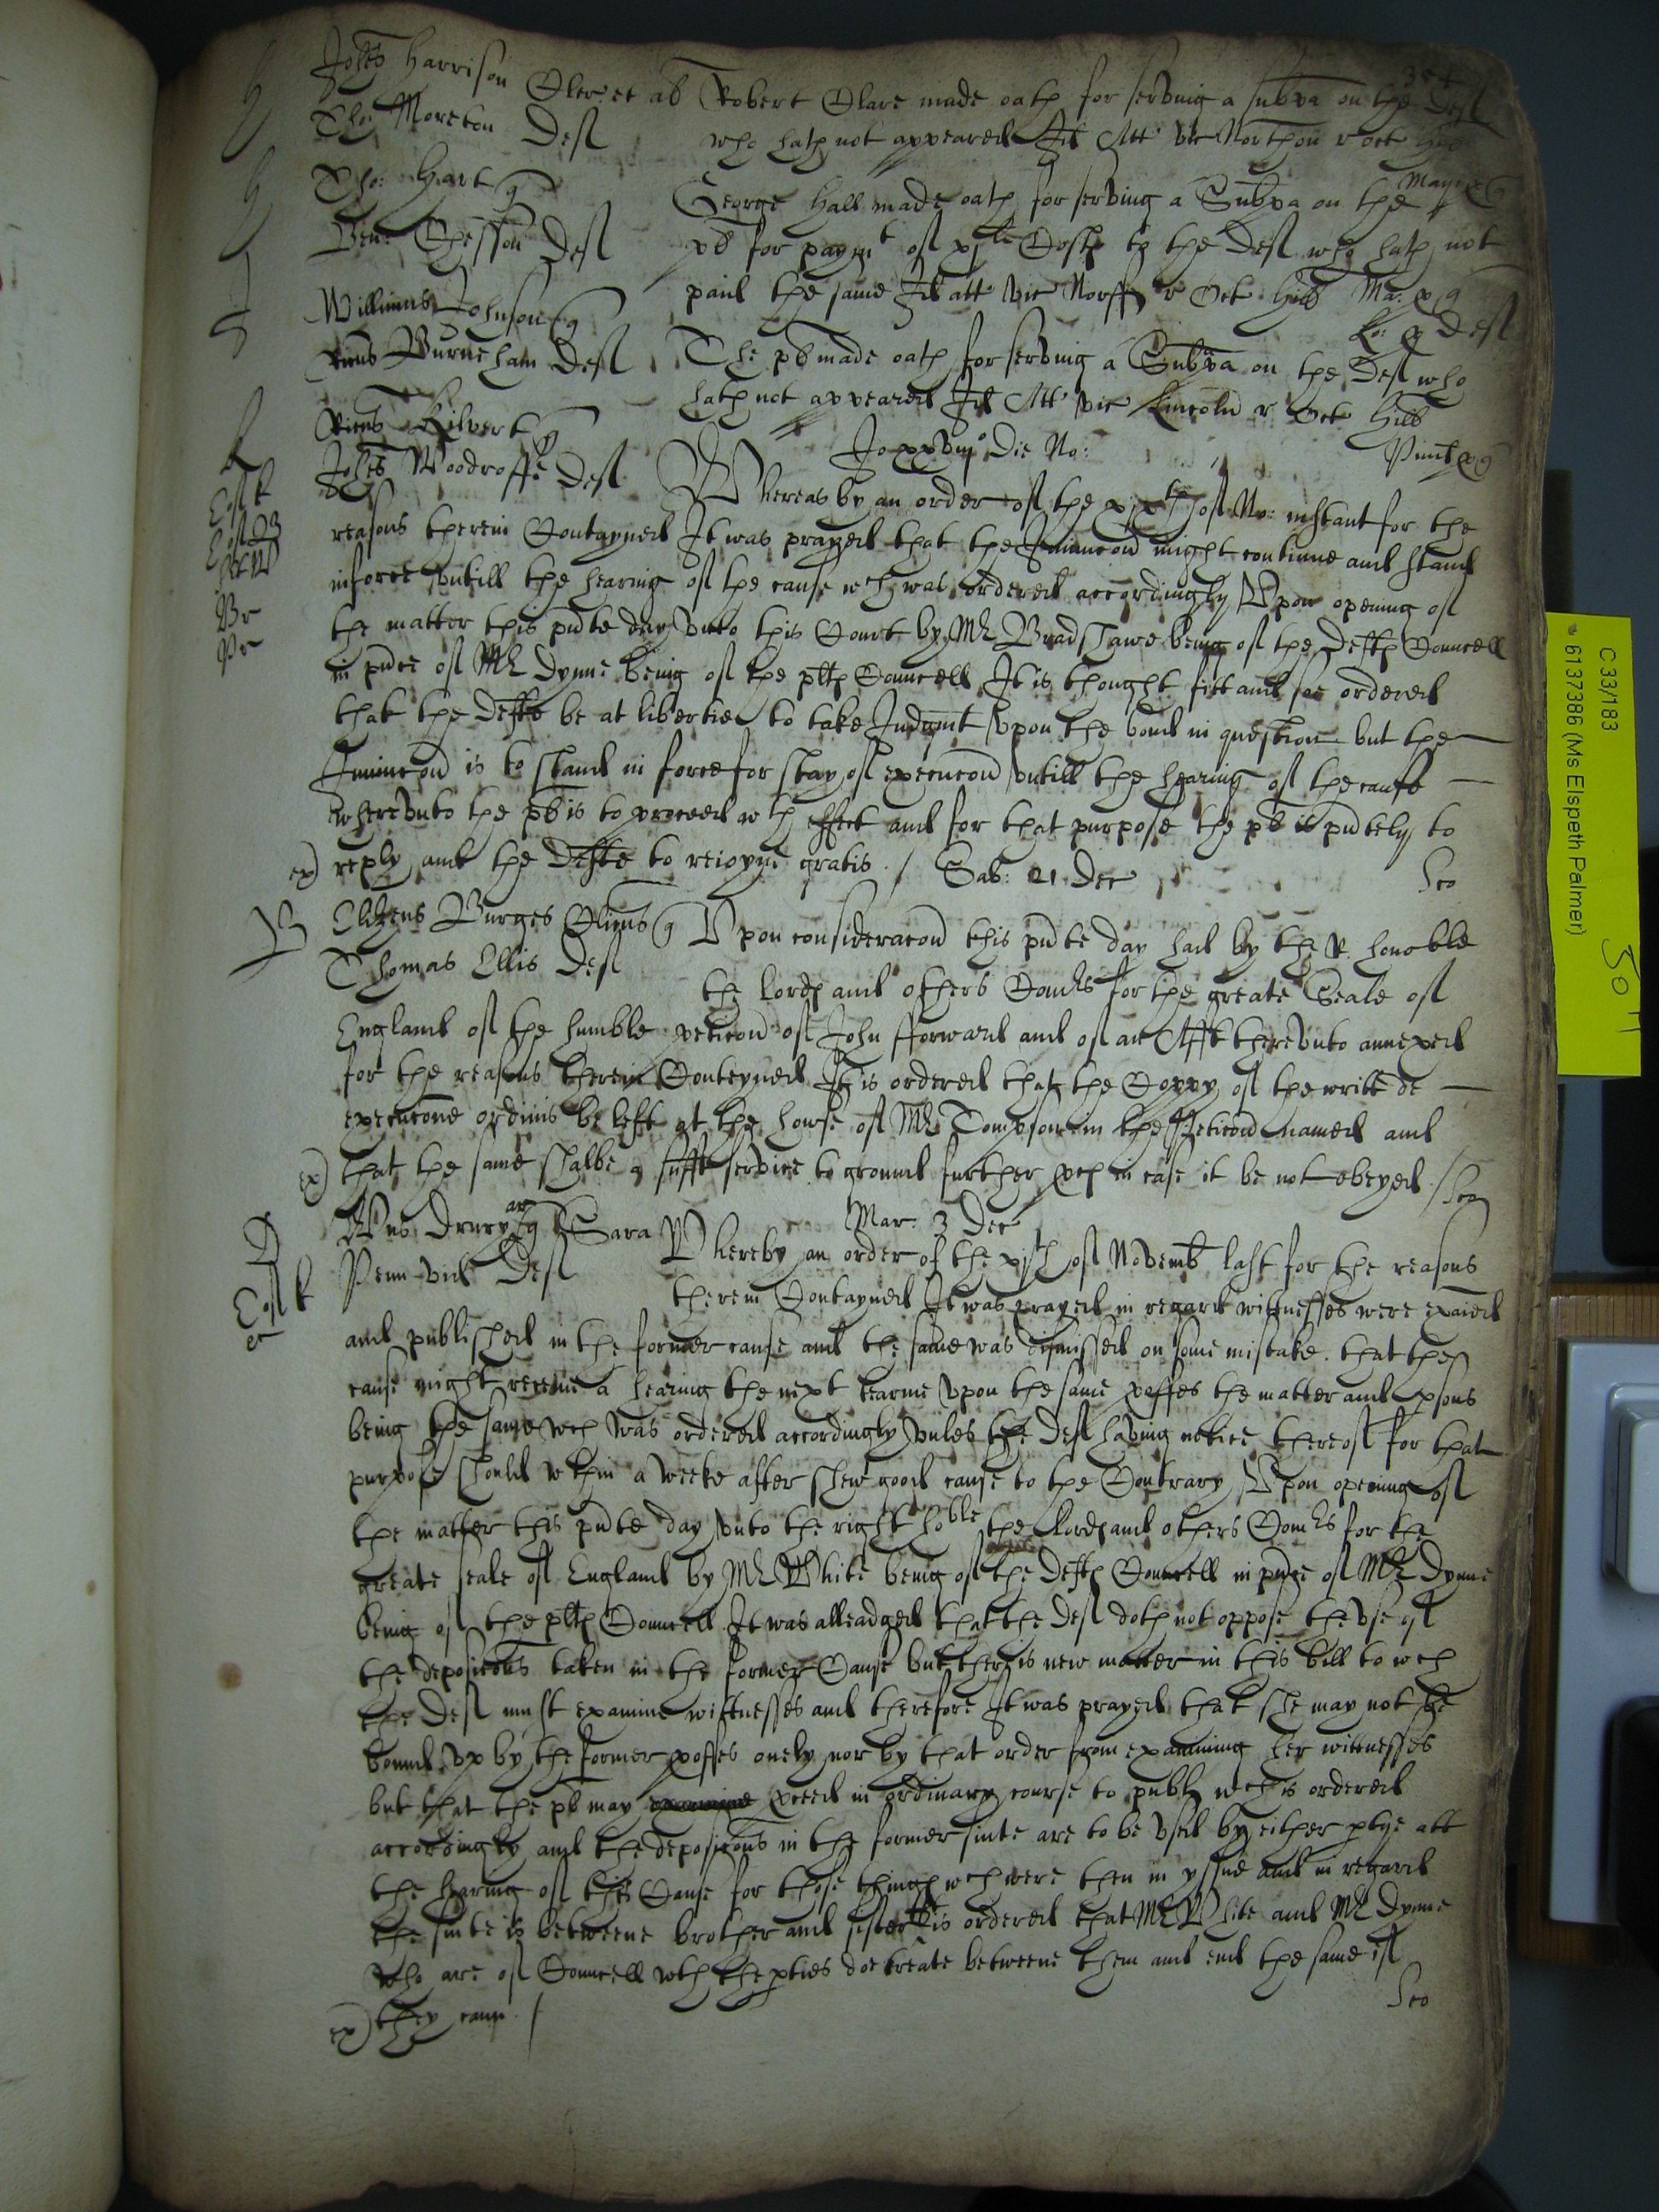 354
Johes Harrison Cler et al Robert Clare made oath for serving a subpa on the Deft
Tho: Moreton Deft who hath not appeared Id Att vic Northon r Oct Hil
Tho: Hart q George Hall made oath for serving a Subpa on the
Ben: Deft pl for paymt of xjs Costs to the Deft who hath not
paid the same Id att vic Norff r Oct Hill Ma: q
Willimus Johnson q
Ricus Burneham Deft The pl made oath for serving a Subpa on the Deft who
hath not appeared Id Att vic Lincoln r Oct Hill
Ricus Kilvert q Jo xxviij Die No:
Johes Woodroffe Deft Whereas by an order of the xixth of No: instant for the
reasons therein Contayned It was prayed that the Iniuncon might continue and stand
in force vntill the hearing of the cause wch was ordered accordingly Vpon opening of
the matter this pnte day vnto this Court by Mr Bradshawe being of the Defts Councell
in pnce of Mr Dynne being of the plts Councell It is thought fitt and soe ordered
that the Defte be at libertie to take Judgmt vpon the bond in question but the
Iniuncon is to stand in force for stay of execucon vntill the hearing of the cause
wherevnto the pl is to proceed wth effect and for that purpose the pl is pntely to
ex) reply and the Defte to reioyne gratis / Sab: 21 Dec
Elizeus Burges Clicus q Vpon consideracon this pnte day had by the R. honoble
Thomas Ellis Deft the Lords and others Comrs for the greate Seale of
England of the humble peticon of John fforward and of an Afft therevnto annexed
for the reasons therein Conteyned It is ordered that the Coppy of the writt de
execucone ordinis be left at the howse of Mr Tompson in the Peticon named and
ex) that the same shalbe a sufft service to ground further pces in case it be not obeyed /
Wms Drury ar q Sara Mar: 3 Dec
Deft Whereby an order of the xjth of Novemb last for the reasons
therein Contayned It was prayed in regard wittnesses were exaied
and published in the former cause and the same was dismissed on some mistake that the
cause might receive a hearing the next tearme vpon the same proffes the matter and psons
being the same wch was ordered accordingly vnles the Deft having notice thereof for that
purpose should wthin a weeke after shew good cause to the Contrary Vpon opening of
the matter this pnte day vnto the right hoble the Lords and others Comrs for the
greate seale of England by Mr White being of the Defts Councell in pnce of Mr Dynne
being of the plts Councell It was alleadged that the Deft doth not oppose the vse of
the deposicons taken in the former Cause but there is new matter in this bill to wch
the Deft must examine wittnesses and therefore It was prayed that she may not be
bound vp by the former proffes onely nor by that order from examining her wittnesses
but that the pl may pceed in ordinary course to publ wch is ordered
accordingly and the deposicons in the former suite are to be vsed by either ptye att
the hearing of this Cause for those things wch were then in yssue and in regard
the suite is betweene brother and sister It is ordered that Mr White and Mr Dynne
who are of Councell wth the pties doe treate betweene them and end the same if
ex) they cann /
C 33/183
6137386 (Ms Elspeth Palmer)